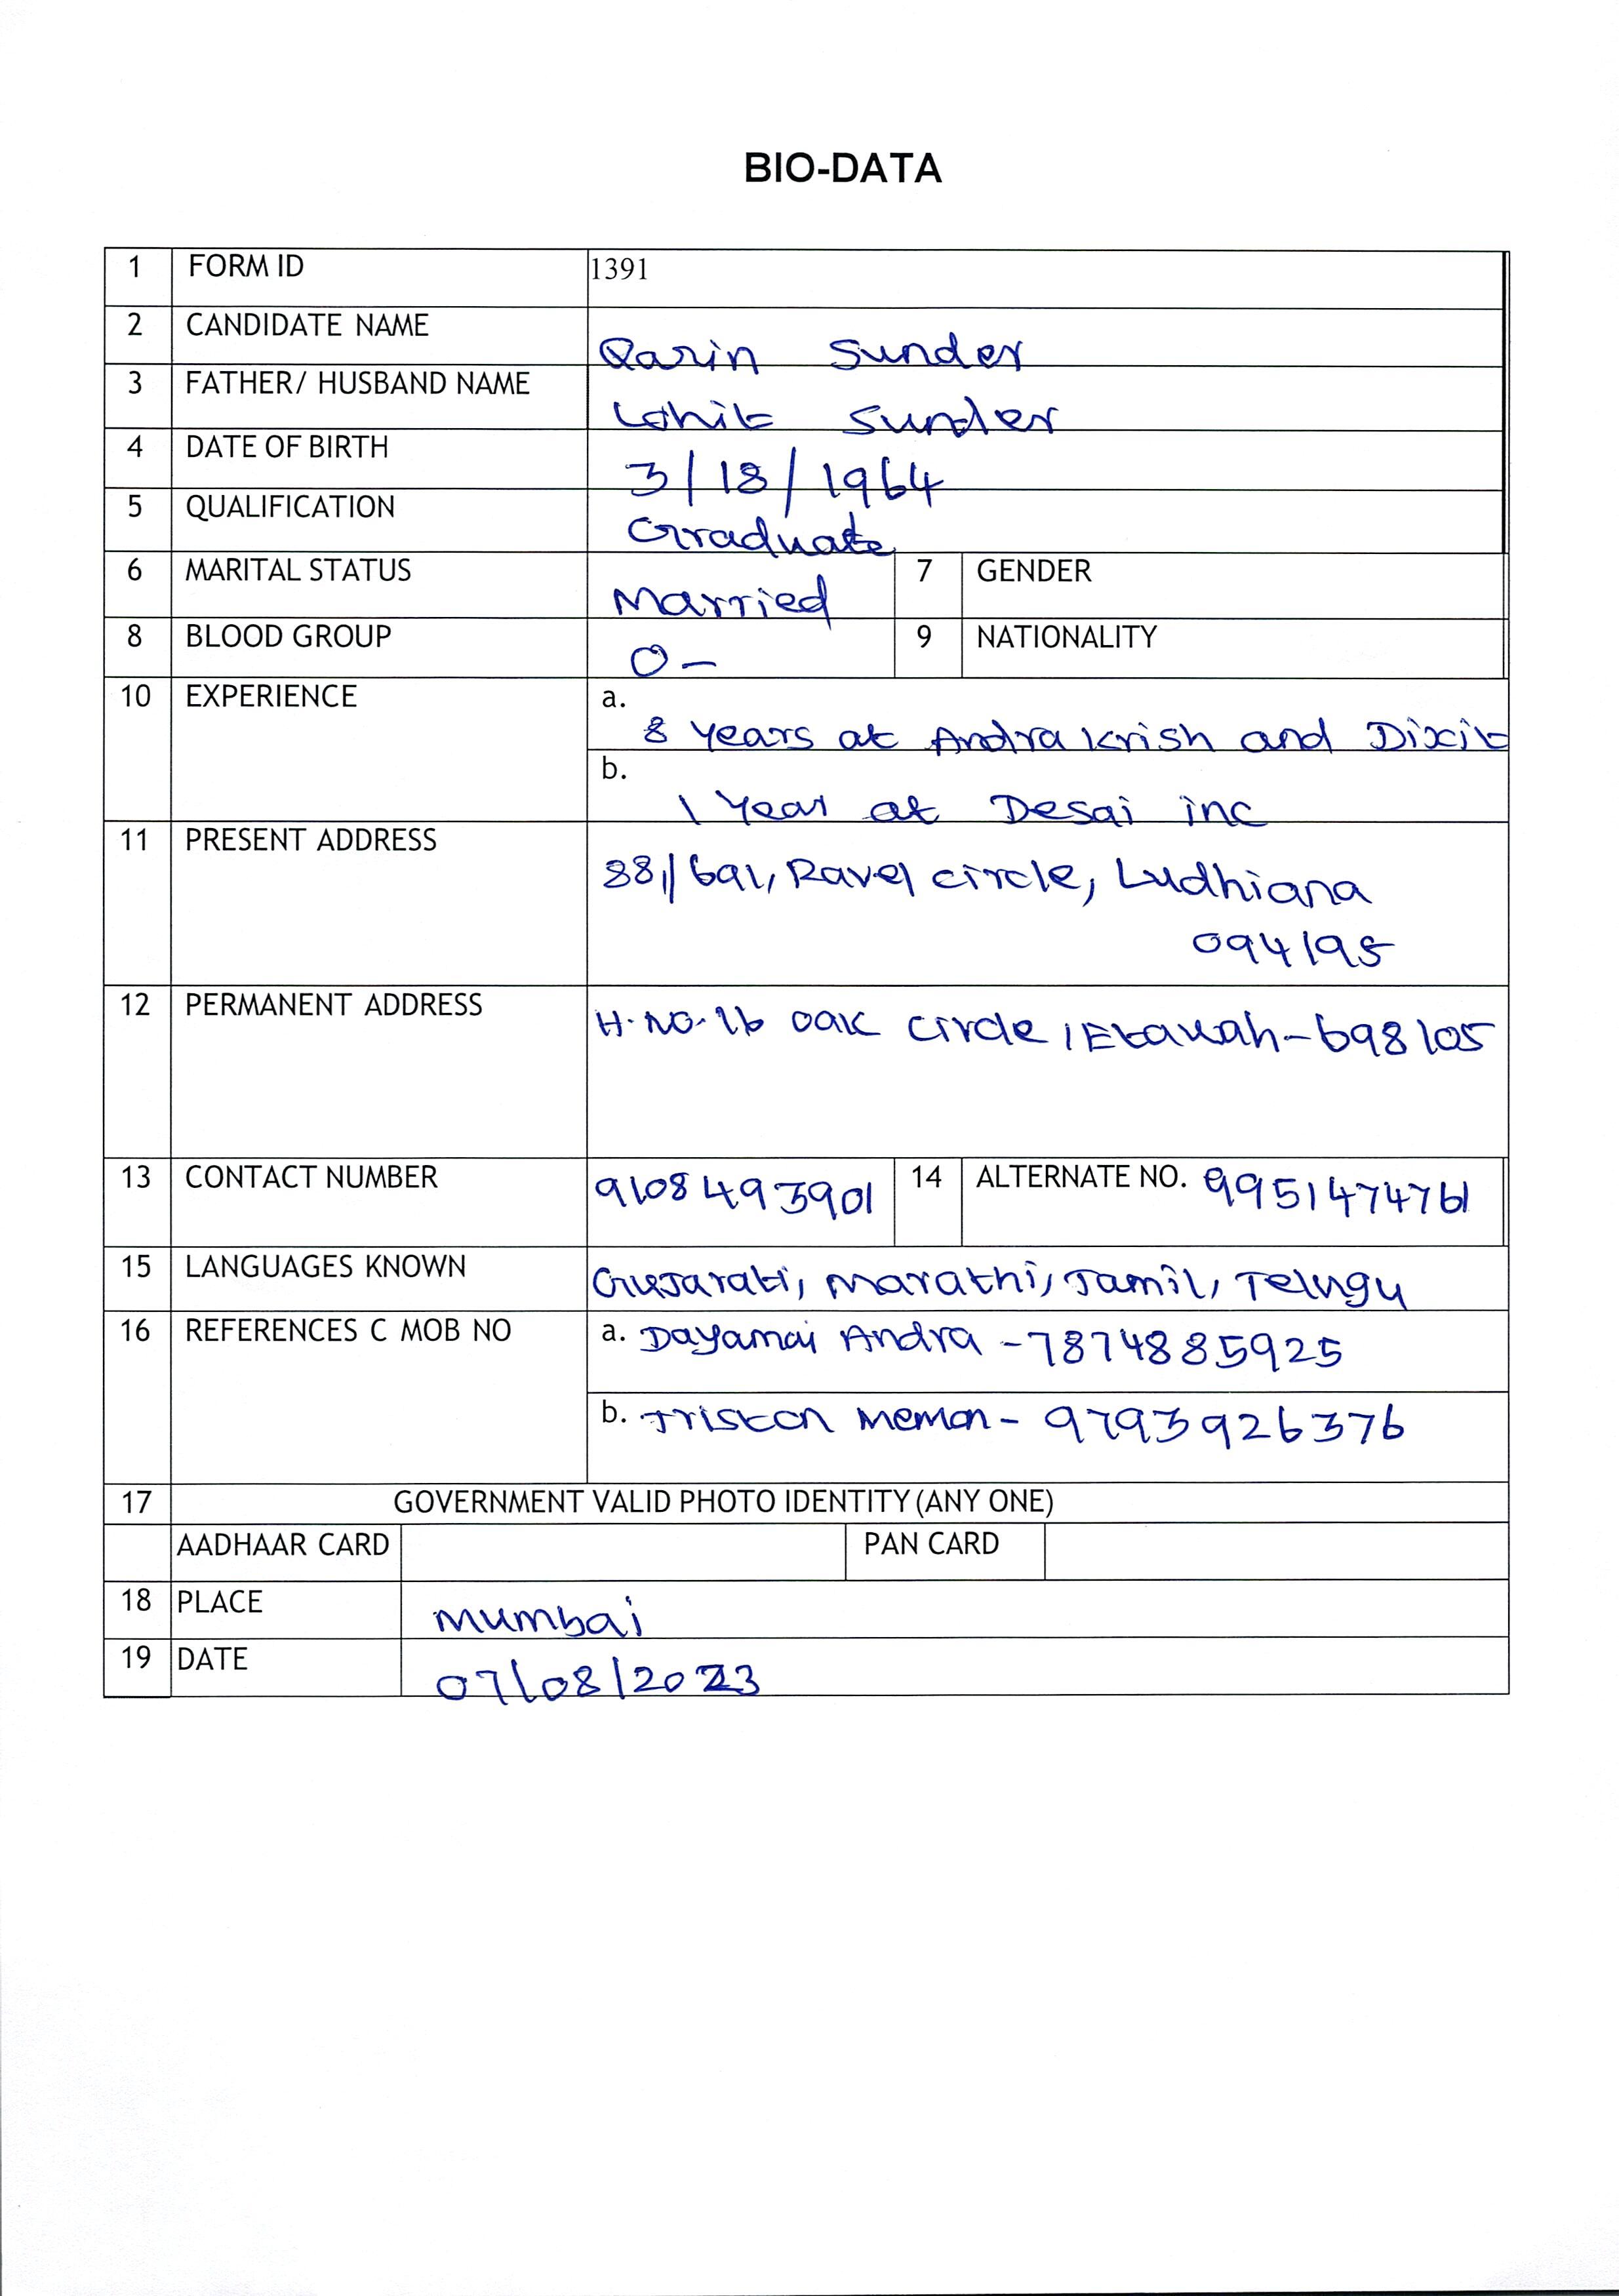 BIO-DATA
1 FORM ID 1391
2 CANDIDATE NAME Qarin Sunder
3 FATHER/ HUSBAND NAME Lohit Sunder
4 DATE OF BIRTH 3/18/1964
5 QUALIFICATION Graduate
6 MARITAL STATUS Married 7 GENDER
8 BLOOD GROUP O- 9 NATIONALITY
10 EXPERIENCE a. 8 Years at Andra Krish and Dixit
b. 1 Year at Desai inc
11 PRESENT ADDRESS 88/691, Ravel circle, Ludhiana
094195
12 PERMANENT ADDRESS H.NO.16 Oak Circle, Etawah-698105
13 CONTACT NUMBER 9108493901 14 ALTERNATE NO. 9951474761
15 LANGUAGES KNOWN Gujarati, Marathi, Tamil, Telugu
16 REFERENCES C MOB NO a. Dayamai Andra - 7874885925
b. Tristan Memon - 9793926376
17 GOVERNMENT VALID PHOTO IDENTITY (ANY ONE)
AADHAAR CARD PAN CARD
18 PLACE Mumbai
19 DATE 07/08/2023